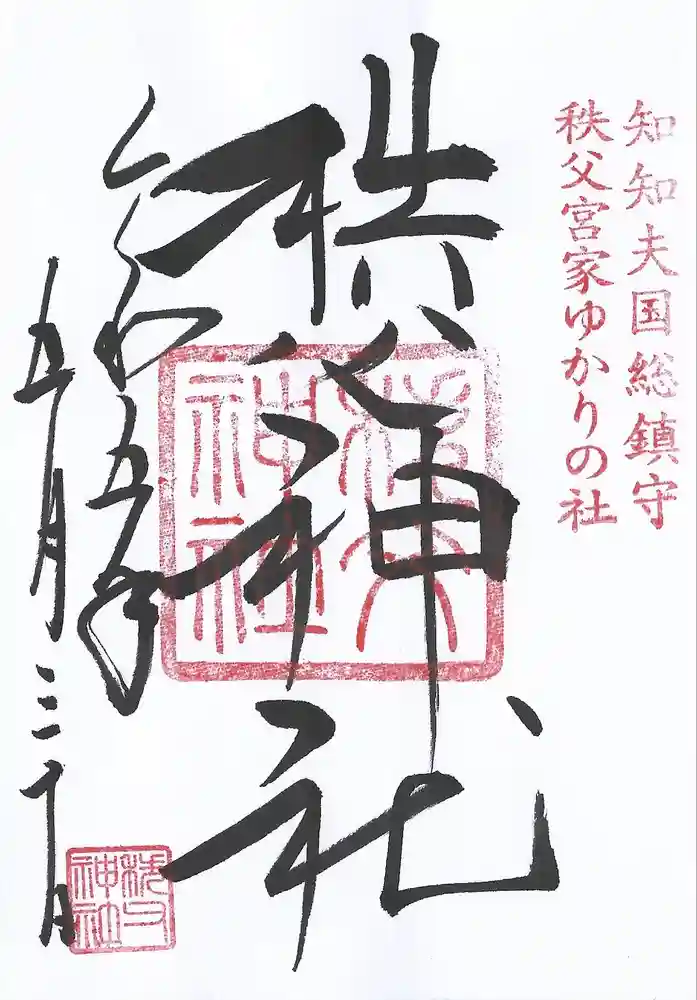 知知夫国総鎮守
秩父宮家ゆかりの社
秩父神社
秩父神社
令和五年
五月三十日
秩父神社